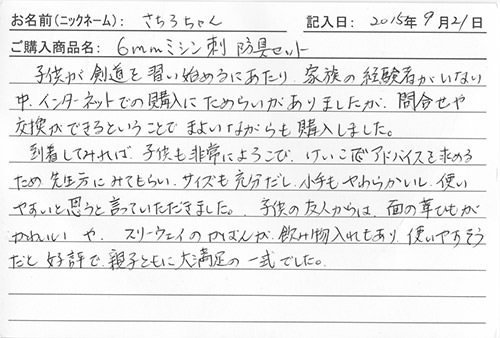 お名前(ニックネーム): さちろちゃん 記入日: 2015年9月21日
ご購入商品名: 6mmミシン刺 防具セット
子供が剣道を習い始めるにあたり、家族の経験者がいない
中、インターネットでの購入にためらいがありましたが、問合せや
交換ができるということでまよいながらも購入しました。
到着してみれば、子供も非常によろこび、けいこ でアドバイスを求める
ため先生方にみてもらい、サイズも充分だし、小手もやわらかいし、使い
やすいと思うと言っていただきました。子供の友人からは、面の革ひもが
かわいい や、スリーウェイのかばんが、飲み物入れもあり、使いやすそう
だと好評で、親子ともに大満足の一式でした。